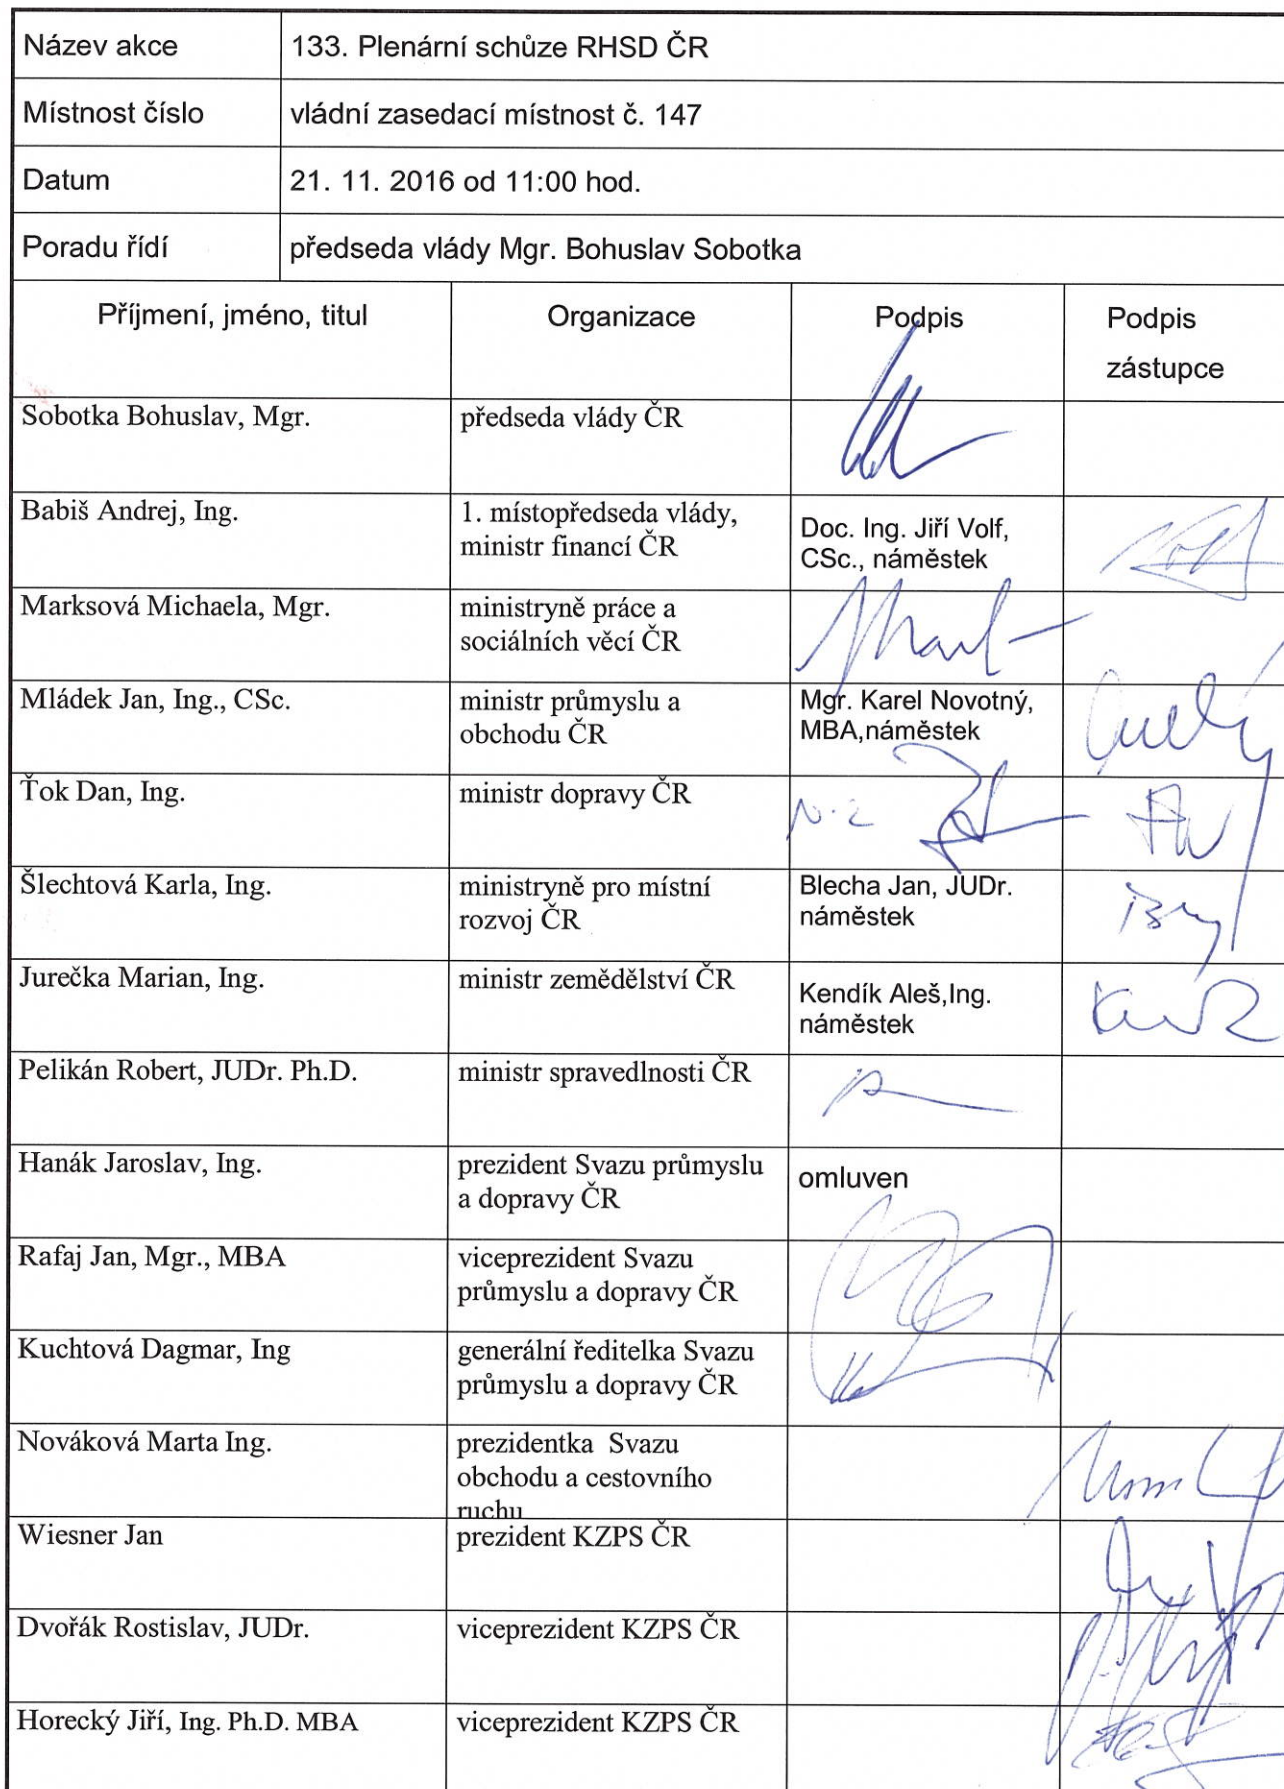 Název akce
133. Plenární schůze RHSD ČR
Místnost číslo
vládní zasedací místnost č. 147
Datum
21. 11. 2016 od 11:00 hod.
Poradu řídí
předseda vlády Mgr. Bohuslav Sobotka
Příjmení, jméno, titul
Organizace
Podpis
Podpis
zástupce
Sobotka Bohuslav, Mgr.
předseda vlády ČR
Babiš Andrej, Ing.
1. místopředseda vlády,
ministr financí ČR
Doc. Ing. Jiří Volf,
CSc., náměstek
Marksová Michaela, Mgr.
ministryně práce a
sociálních věcí ČR
Mládek Jan, Ing., CSc.
ministr průmyslu a
obchodu ČR
Mgr. Karel Novotný,
MBA,náměstek
Ťok Dan, Ing.
ministr dopravy ČR
Šlechtová Karla, Ing.
ministryně pro místní
rozvoj ČR
Blecha Jan, JUDr.
náměstek
Jurečka Marian, Ing.
ministr zemědělství ČR
Kendík Aleš,Ing.
náměstek
Pelikán Robert, JUDr. Ph.D.
ministr spravedlnosti ČR
Hanák Jaroslav, Ing.
prezident Svazu průmyslu
a dopravy ČR
omluven
Rafaj Jan, Mgr., MBA
viceprezident Svazu
průmyslu a dopravy ČR
Kuchtová Dagmar, Ing
generální ředitelka Svazu
průmyslu a dopravy ČR
Nováková Marta Ing.
prezidentka Svazu
obchodu a cestovního
ruchu
Wiesner Jan
prezident KZPS ČR
Dvořák Rostislav, JUDr.
viceprezident KZPS ČR
Horecký Jiří, Ing. Ph.D. MBA
viceprezident KZPS ČR